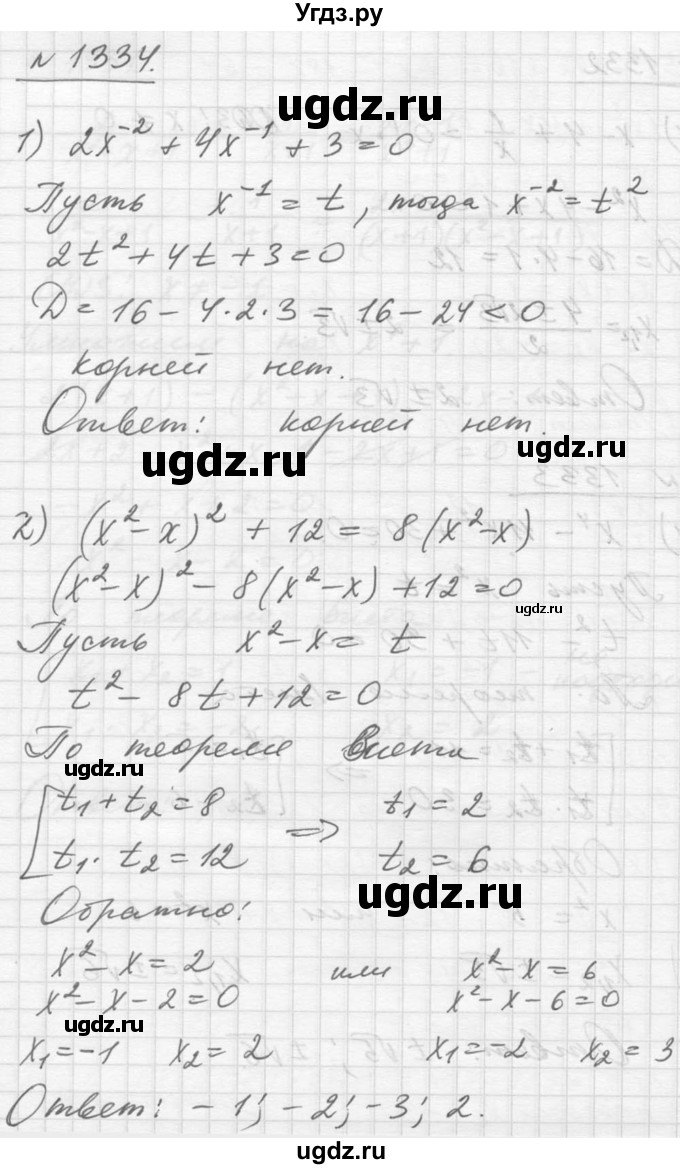 Угдз.ру
№ 1334.
ugdz.ru
1) 2x⁻² + 4x⁻¹ + 3 = 0
Пусть x⁻¹ = t, тогда x⁻² = t²
2t² + 4t + 3 = 0
ugdz.ru
D = 16 - 4·2·3 = 16 - 24 < 0
корней нет.
Ответ: корней нет.
ugdz.ru
2) (x² - x)² + 12 = 8(x² - x)
(x² - x)² - 8(x² - x) + 12 = 0
ugdz.ru
Пусть x² - x = t
t² - 8t + 12 = 0
По теореме Виета
ugdz.ru
[t₁ + t₂ = 8 ⇒ t₁ = 2
t₁ · t₂ = 12 t₂ = 6
ugdz.ru
Обратно:
x² - x = 2 или x² - x = 6
x² - x - 2 = 0 x² - x - 6 = 0
ugdz.ru
x₁ = -1 x₂ = 2 x₁ = -2 x₂ = 3
Ответ: -1; -2; -3; 2.
ugdz.ru